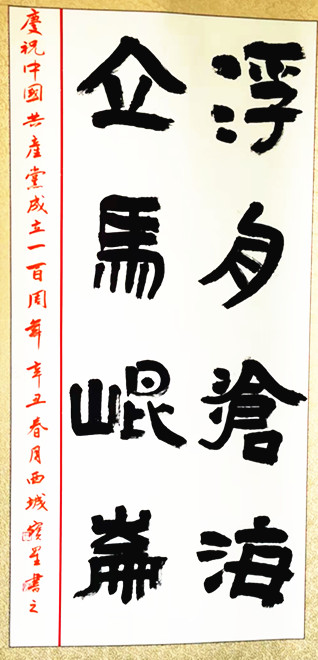 浮舟滄海
立馬崐崙
慶祝中國共產黨成立一百周年辛丑春月西城星書之